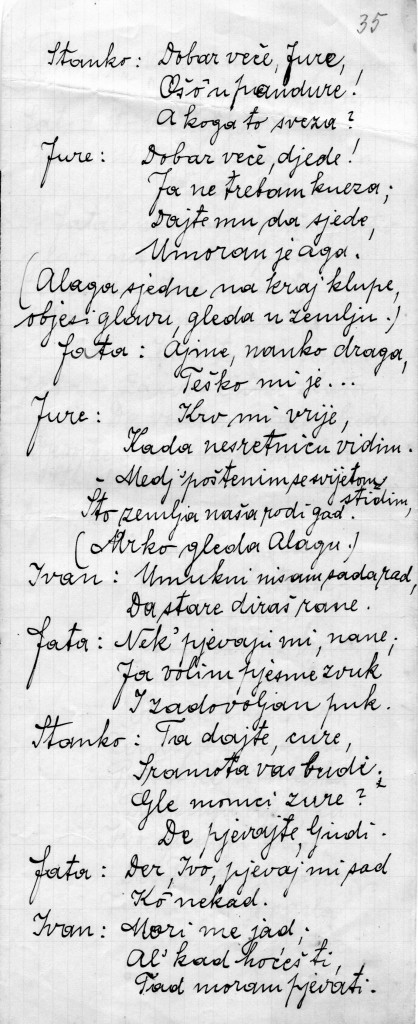 35
Stanko: Dobar veče, Jure,
Ošo u pandure!
A koga to sveza?
Jure: Dobar veče, djede!
Ja ne trebam kneza;
Dajte mu da sjede,
Umoran je aga.
(Alaga sjedne na kraj klupe,
objesi glavu, gleda u zemlju.)
Fata: Ajme, nanko draga,
Teško mi je...
Jure: Krv mi vrije,
Kada nesretnicu vidim.
- Medj' poštenim se svijetom
stidim,
Što zemlja naša rodi gad.
(Mrko gleda Alagu.)
Ivan: Umukni nisam sada rad,
Da stare diraš rane.
Fata: Nek' pjevaju mi, nane;
Ja volim pjesme zvuk
I zadovoljan puk.
Stanko: Ta dajte, cure,
Sramota vas budi;
Gle momci zure?
De, pjevajte, ljudi.
Fata: Der, Ivo, pjevaj mi sad
Ko nekad.
Ivan: Mori me jad;
Al' kad hoćeš ti,
Tad moram pjevati.